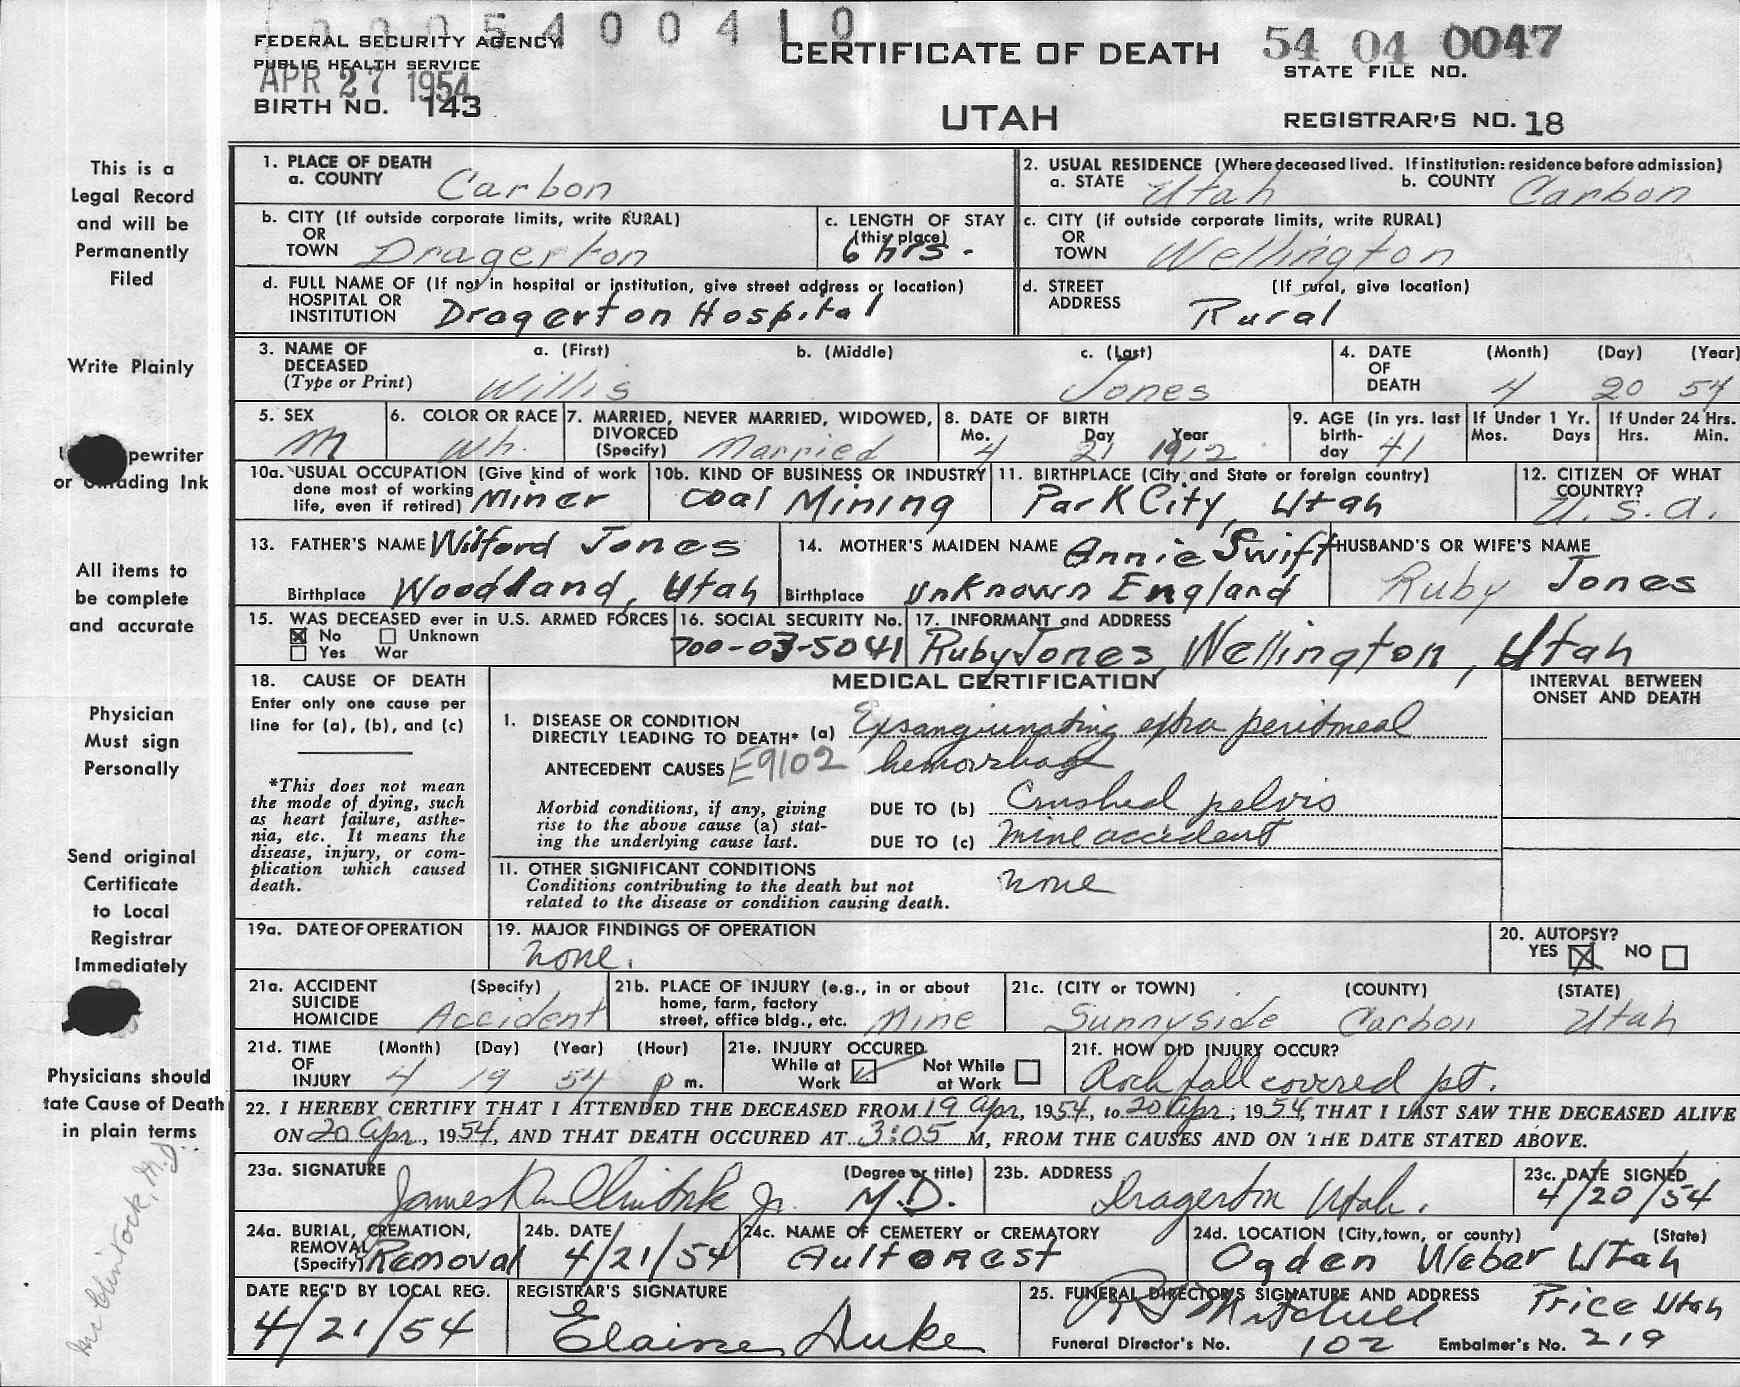 1 0 0 0 5 4 0 0 4 1 0
FEDERAL SECURITY AGENCY
PUBLIC HEALTH SERVICE
APR 27 1954
BIRTH NO. 143
CERTIFICATE OF DEATH
UTAH
54 04 0047
STATE FILE NO.
REGISTRAR'S NO. 18
This is a
Legal Record
and will be
Permanently
Filed
Write Plainly
pewriter
or Unfading Ink
All items to
be complete
and accurate
Physician
Must sign
Personally
Send original
Certificate
to Local
Registrar
Immediately
Physicians should
tate Cause of Death
in plain terms
McClintock, M.D.
1. PLACE OF DEATH
a. COUNTY Carbon
2. USUAL RESIDENCE (Where deceased lived. If institution: residence before admission)
a. STATE Utah b. COUNTY Carbon
b. CITY (If outside corporate limits, write RURAL)
OR
TOWN Dragerton
c. LENGTH OF STAY
(this place)
6 hrs.
c. CITY (if outside corporate limits, write RURAL)
OR
TOWN Wellington
d. FULL NAME OF (If not in hospital or institution, give street address or location)
HOSPITAL OR
INSTITUTION Dragerton Hospital
d. STREET (If rural, give location)
ADDRESS Rural
3. NAME OF a. (First) b. (Middle) c. (Last)
DECEASED
(Type or Print) Willis Jones
4. DATE (Month) (Day) (Year)
OF
DEATH 4 20 54
5. SEX
M
6. COLOR OR RACE
Wh.
7. MARRIED, NEVER MARRIED, WIDOWED,
DIVORCED
(Specify) Married
8. DATE OF BIRTH
Mo. Day Year
4 21 1912
9. AGE (in yrs. last
birth-
day 41
If Under 1 Yr.
Mos. Days
If Under 24 Hrs.
Hrs. Min.
10a. USUAL OCCUPATION (Give kind of work
done most of working
life, even if retired) Miner
10b. KIND OF BUSINESS OR INDUSTRY
Coal Mining
11. BIRTHPLACE (City and State or foreign country)
Park City, Utah
12. CITIZEN OF WHAT
COUNTRY?
U.S.A.
13. FATHER'S NAME Wilford Jones
Birthplace Woodland, Utah
14. MOTHER'S MAIDEN NAME Annie Swift
Birthplace Unknown England
HUSBAND'S OR WIFE'S NAME
Ruby Jones
15. WAS DECEASED ever in U.S. ARMED FORCES
☒ No ☐ Unknown
☐ Yes War
16. SOCIAL SECURITY No.
700-03-5041
17. INFORMANT and ADDRESS
Ruby Jones, Wellington, Utah
18. CAUSE OF DEATH
Enter only one cause per
line for (a), (b), and (c)
*This does not mean
the mode of dying, such
as heart failure, asthe-
nia, etc. It means the
disease, injury, or com-
plication which caused
death.
MEDICAL CERTIFICATION
INTERVAL BETWEEN
ONSET AND DEATH
I. DISEASE OR CONDITION
DIRECTLY LEADING TO DEATH* (a) Exsanguinating extra peritoneal
ANTECEDENT CAUSES E9102 hemorrhage
Morbid conditions, if any, giving
rise to the above cause (a) stat-
ing the underlying cause last.
DUE TO (b) Crushed pelvis
DUE TO (c) Mine accident
II. OTHER SIGNIFICANT CONDITIONS
Conditions contributing to the death but not
related to the disease or condition causing death.
none
19a. DATE OF OPERATION
19. MAJOR FINDINGS OF OPERATION
none.
20. AUTOPSY?
YES ☒ NO ☐
21a. ACCIDENT (Specify)
SUICIDE
HOMICIDE Accident
21b. PLACE OF INJURY (e.g., in or about
home, farm, factory
street, office bldg., etc. Mine
21c. (CITY or TOWN) (COUNTY) (STATE)
Sunnyside Carbon Utah
21d. TIME (Month) (Day) (Year) (Hour)
OF
INJURY 4 19 54 p m.
21e. INJURY OCCURED
While at
Work ☑
Not While
at Work ☐
21f. HOW DID INJURY OCCUR?
Rock fall covered pt.
22. I HEREBY CERTIFY THAT I ATTENDED THE DECEASED FROM 19 Apr, 1954, to 20 Apr, 1954, THAT I LAST SAW THE DECEASED ALIVE
ON 20 Apr., 1954, AND THAT DEATH OCCURED AT 3:05 M, FROM THE CAUSES AND ON THE DATE STATED ABOVE.
23a. SIGNATURE (Degree or title)
James McClintock Jr. M.D.
23b. ADDRESS
Dragerton Utah.
23c. DATE SIGNED
4/20/54
24a. BURIAL, CREMATION,
REMOVAL
(Specify) Removal
24b. DATE
4/21/54
24c. NAME OF CEMETERY or CREMATORY
Aultorest
24d. LOCATION (City, town, or county) (State)
Ogden Weber Utah
DATE REC'D BY LOCAL REG.
4/21/54
REGISTRAR'S SIGNATURE
Elaine Duke
25. FUNERAL DIRECTOR'S SIGNATURE AND ADDRESS
Mitchell Price Utah
Funeral Director's No. 102 Embalmer's No. 219